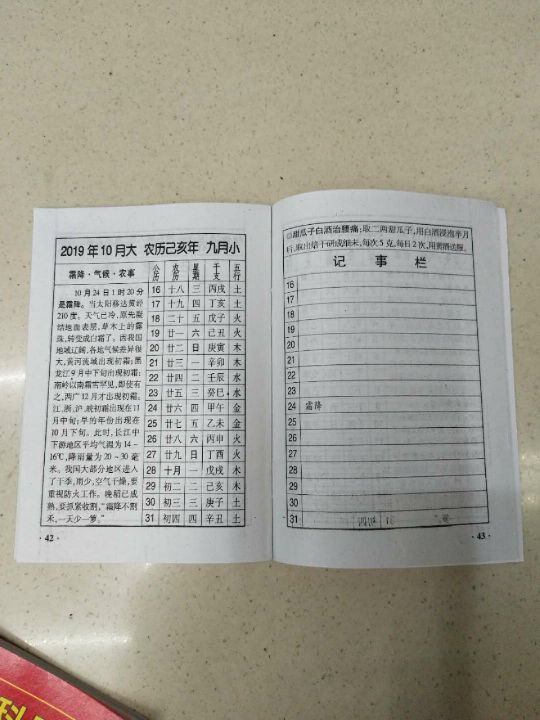 2019年10月大 农历己亥年 九月小
霜降·气候·农事
10月24日1时20分
是霜降。当太阳移达黄经
210度。天气已冷,原先凝
结地面表层,草木上的露
珠,转变成白霜了。因我国
地域辽阔,各地气候差异很
大,黄河流域出现初霜;黑
龙江9月中下旬出现初霜;
南岭以南霜雪罕见,即使有
之,两广12月才出现初霜,
江、浙、沪、皖初霜出现在11
月中旬;早的年份出现在
10月下旬。此时,长江中
下游地区平均气温为14~
16℃,降雨量为20~30毫
米。我国大部分地区进入
了干季,雨少,空气干燥,要
重视防火工作。晚稻已成
熟,要抓紧收割,“霜降不割
禾,一天少一箩。”
公历 农历 星期 干支 五行
16 十八 三 丙戌 土
17 十九 四 丁亥 土
18 二十 五 戊子 火
19 廿一 六 己丑 火
20 廿二 日 庚寅 木
21 廿三 一 辛卯 木
22 廿四 二 壬辰 水
23 廿五 三 癸巳 水
24 廿六 四 甲午 金
25 廿七 五 乙未 金
26 廿八 六 丙申 火
27 廿九 日 丁酉 火
28 十月 一 戊戌 木
29 初二 二 己亥 木
30 初三 三 庚子 土
31 初四 四 辛丑 土
·42·
◎甜瓜子白酒治腰痛:取二两甜瓜子,用白酒浸泡半月
后,取出焙干研成细末,每次5克,每日2次,用黄酒送服。
记事栏
16
17
18
19
20
21
22
23
24 霜降
25
26
27
28
29
30
31
·43·